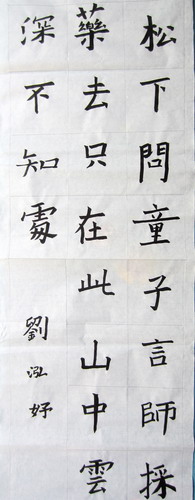 松下問童子言師採
藥去只在此山中雲
深不知處
劉泓妤